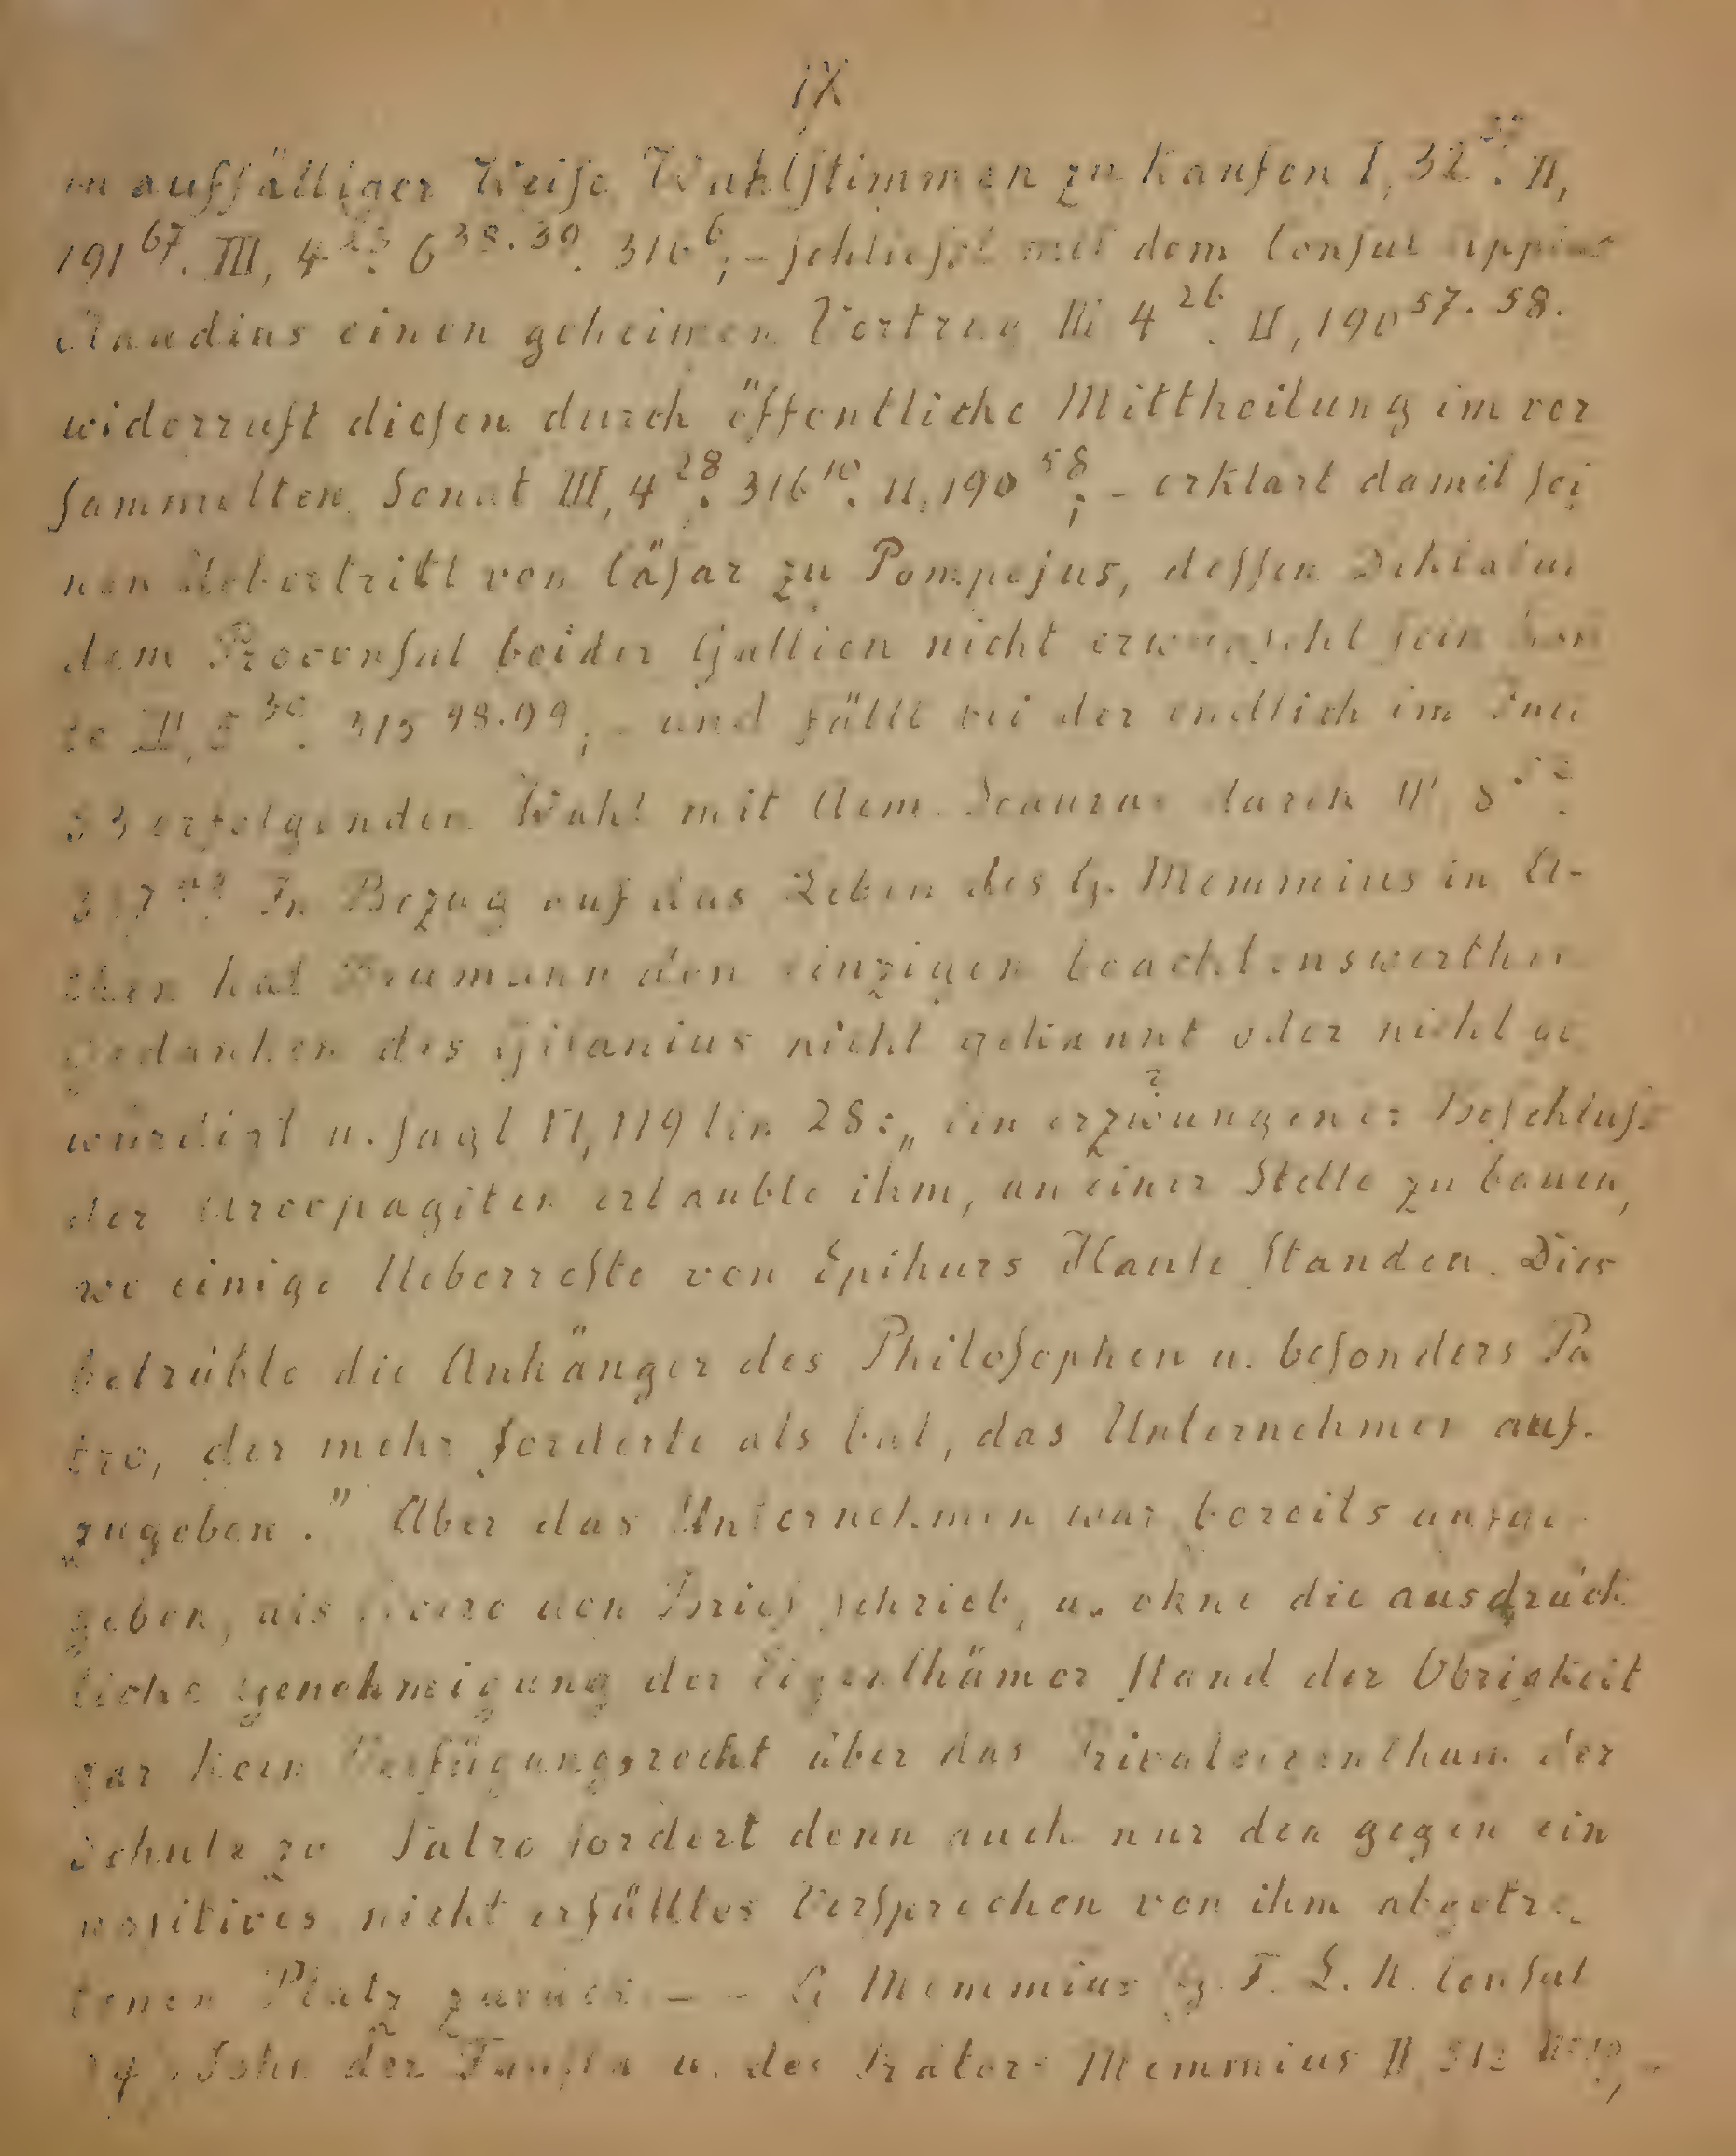 IX
in auffälliger Weise Wahlstimmen zu kaufen I, 32 II,
191 67. III, 4 6 38.39. 316 6; – schließt mit dem Consul Appius
Claudius einen geheimen Vertrag III 4 26. II, 190 57. 58.
widerruft diesen durch öffentliche Mittheilung im ver
sammelten Senat III, 4 28. 316 10. II, 190 58; – erklärt damit sei
nen Uebertritt von Cäsar zu Pompejus, dessen Diktatur
dem Proconsul beider Gallien nicht erwünscht sein konn
te 5 315 98.99; – und fällt bei der endlich im Juli
53 erfolgenden Wahl mit Aem. Scaurus durch
317 In Bezug auf das Leben des G. Memmius in A-
then hat Drumann den einzigen beachtenswerthen
Gedanken des Gifanius nicht gekannt oder nicht ge
würdigt u. sagt VI, 119 lin 28: „ ein erzwungener ? Beschluß
der Areopagiten erlaubte ihm, an einer Stelle zu bauen,
wo einige Ueberreste von Epikurs Hause standen. Dies
betrübte die Anhänger des Philosophen u. besonders Pa
tro, der mehr forderte als bat, das Unternehmen auf-
zugeben." Aber das Unternehmen war bereits aufge
geben, als Cicero den Brief schrieb, u. ohne die ausdrück
liche Genehmigung der Eigenthümer stand der Obrigkeit
gar kein Verfügungsrecht über das Privateigenthum der
Schule zu Patro fordert denn auch nur den gegen ein
positives nicht erfülltes Versprechen von ihm abgetre
tenen Platz zurück. – – G Memmius G. F. L. N. Consul
Sohn der Fausta u. des Prätors Memmius II